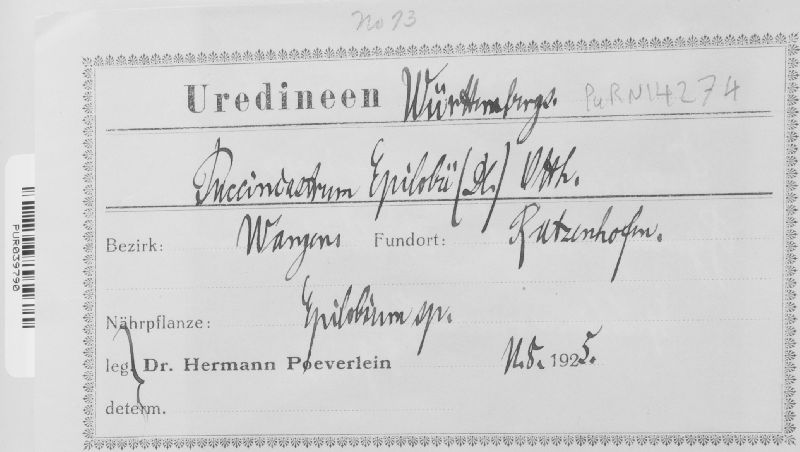 No 73
Uredineen Württembergs. PURN14274
Pucciniastrum Epilobii (Pl.) Otth.
Bezirk: Wangen Fundort: Ratzenhofen.
Nährpflanze: Epilobium sp.
leg. Dr. Hermann Poeverlein 11.8. 1925.
determ.
PUR039790